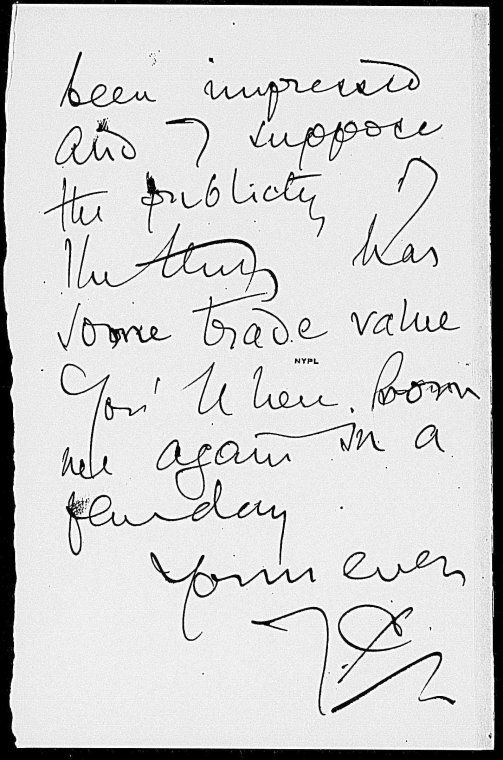 been impressed
and I suppose
the publicity, of
the thing has
some trade value
NYPL
You'll hear from
me again in a
few days
Yours ever
J.C.